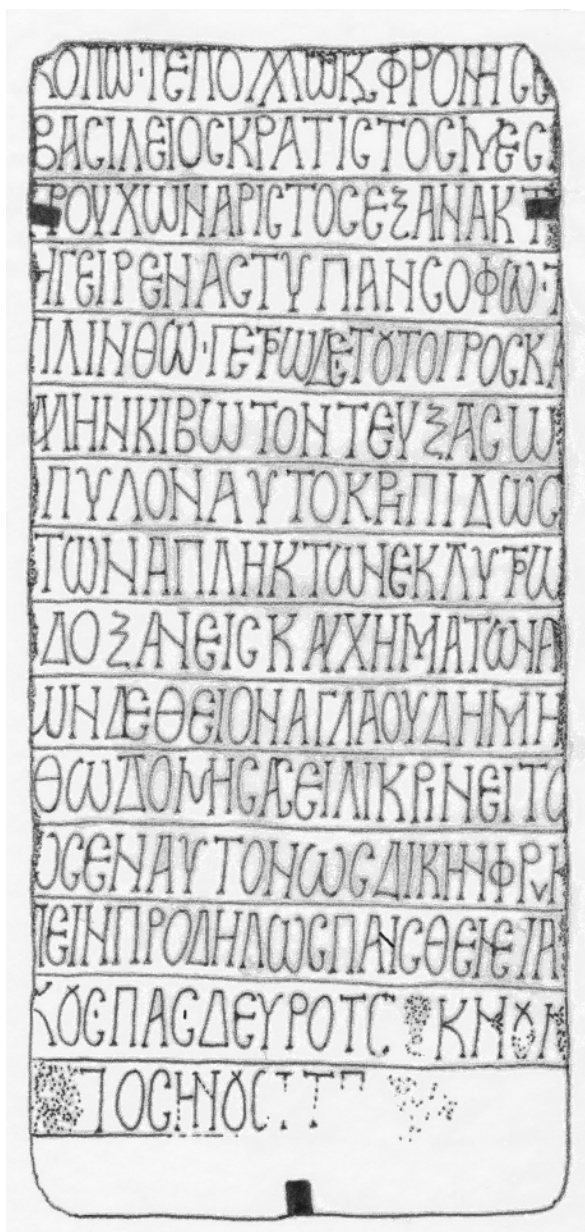 ΚΟΠΩ·ΤΕΠΟΛΛΩΚΦΡΟΝΗϹΕ
ΒΑϹΙΛΕΙΟϹΚΡΑΤΙϹΤΟϹΜΕϹΑ
ΤΡΟΥΧΩΝΑΡΙϹΤΟϹΕΞΑΝΑΚΤ
ΗΓΕΙΡΕΝΑϹΤΥΠΑΝϹΟΦΩ·Τ
ΠΛΙΝΘΩ·ΠΕΤΡΩΔΕΤȣΤΟΠΡΟϹΚΑ
ΛΛΗΝΚΙΒΩΤΟΝΤΕΥΞΑϹΩ
ΠΥΛΟΝΑΥΤΟΚΡΗΠΙΔΩϹ
ΤΩΝΑΠΛΗΚΤΩΝΕΚΛΥΤΡΩ
ΔΟΞΑΝΕΙϹΚΑΥΧΗΜΑΤΩΝΑ
ΩΝΔΕΘΕΙΟΝΑΓΛΑΟΥΔΗΜΗ
ΘΩΔΟΜΗϹΑϹΕΙΛΙΚΡΙΝΕΙΤΟ
ΟϹΕΝΑΥΤΟΝΩϹΔΙΚΗΝΦΡΥΚ
ΠΕΙΝΠΡΟΔΗΛΩϹΠΑΙϹΘΕΙΕΙΑ
ΚȣϹ·ΠΑϹΔΕΥΡΟΤϹ ΚΗȣΚ
ΤΟϹΗΝȣϹ